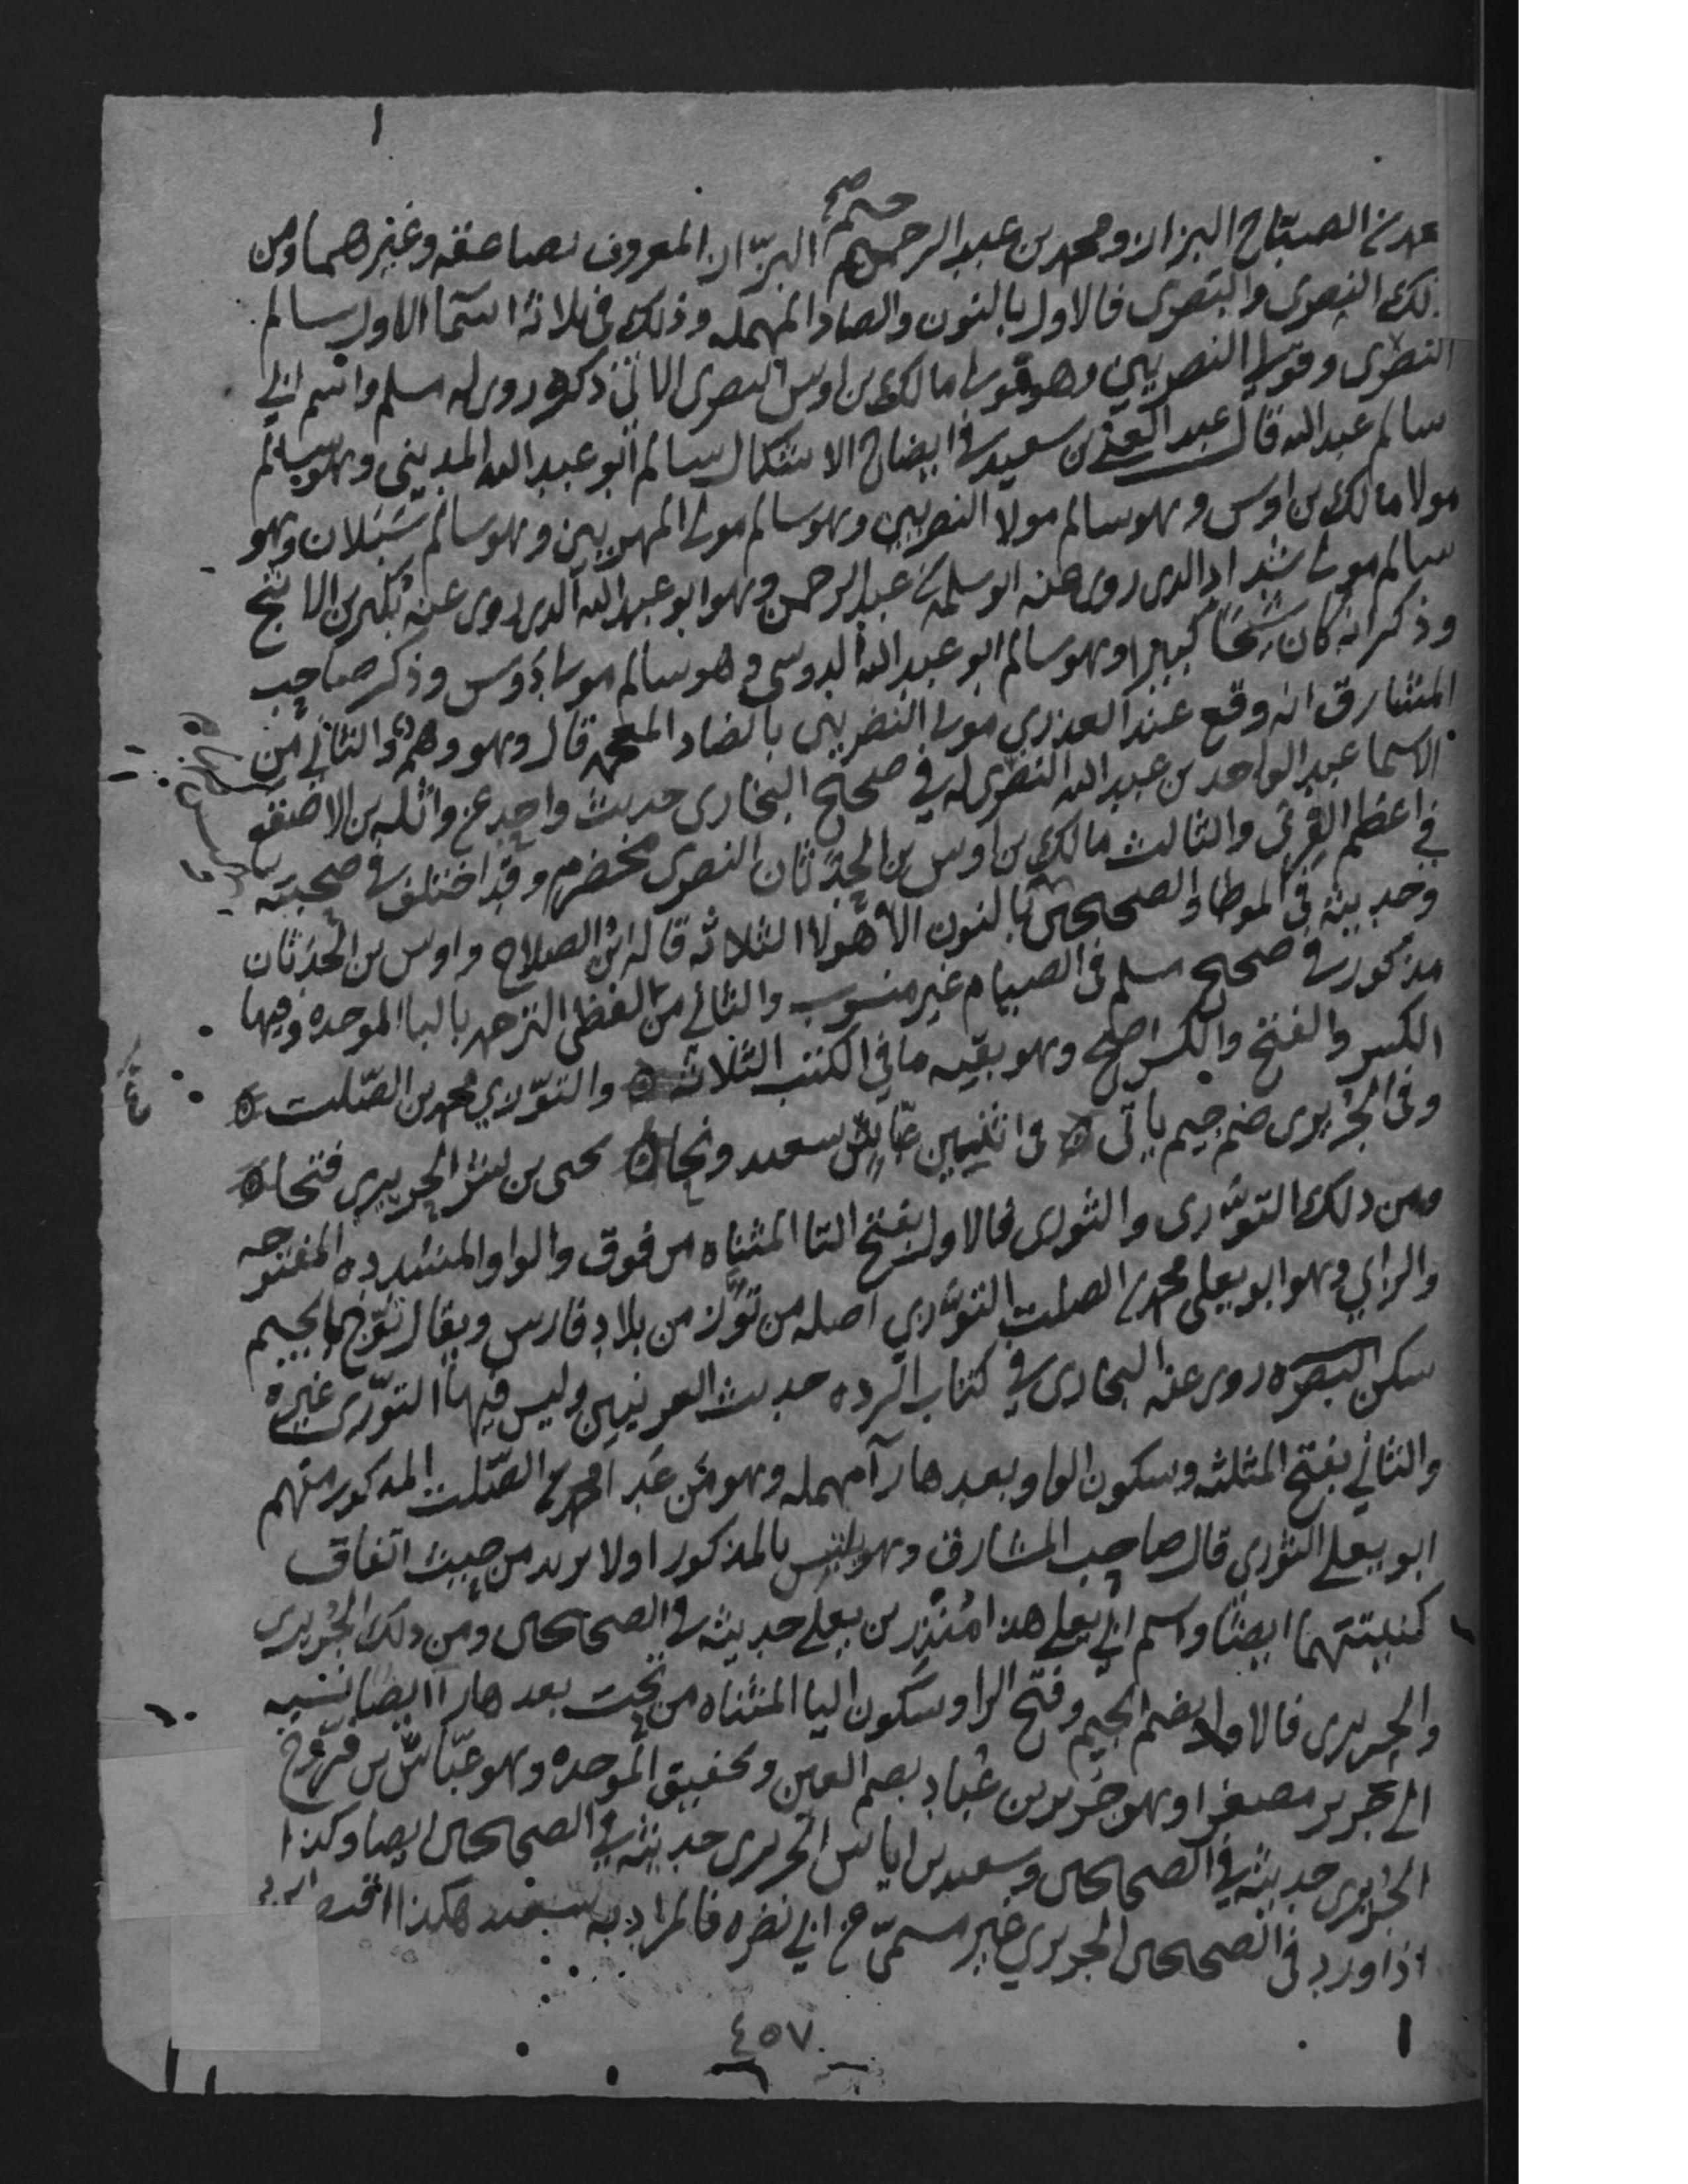 محمد بن الصباح البزاز ومحمد بن عبد الرحيم البزاز المعروف بصاعقه وغيرهما ومن
ذلك النصرى والبصرى فالاول بالنون والصاد المهمله وذلك فى ثلاثة اسما الاول سالم
النصرى وقولى النصريين وهو مولى مالك بن اوس النصرى الاتى ذكره روى له مسلم واسم ابي
سالم عبد الله قال عبد الغنى بن سعيد في ايضاح الاشكال سالم ابو عبد الله المديني وهو سالم
مولا مالك بن اوس وهو سالم مولا النصريين وهو سالم مولى المهريين وهو سالم سَبَلان وهو
سالم مولى شداد الدى روى عنه ابو سلمة بن عبد الرحمن وهو ابو عبد الله الدى روى عنه بُكير بن الاشج
وذكر انه كان شيخًا كبيرا وهو سالم ابو عبد الله الدوسى وهو سالم مولى دوس وذكر صاحب
المشارق انه وقع عند العذري مولى النضريين بالضاد المعجمه قال وهو وهم والثاني من
الاسما عبد الواحد بن عبد الله النصرى له في صحيح البخارى حديث واحد عن واثله بن الاصقع
في اعظم الفرى والثالث مالك بن اوس بن الحدثان النصرى مخضرم وقد اختلف في صحبته
وحديثه فى الموطا والصحيحين بالنون الا هولا الثلاثه قاله ابن الصلاح واوس بن الحدثان
مذكور في صحيح مسلم فى الصيام غير منسوب والثاني من لفظى الترجمه بالبا الموحده وفيها
الكسر والفتح والكسر اصح وهو بقيه ما في الكتب الثلاثه ۞ والتوّزي محمد بن الصّلت ۞
وفى الجُريرى ضم جيم ياتى ۞ فى اثنين عبّاس سعيد ونحا ۞ يحيى بن بشر الحريري فتحا ۞
ومن ذلك التوّزى والثورى فالاول بفتح التا المثناه من فوق والواو المشدده المفتوحه
والزاي وهو ابو يعلى محمد بن الصلت التوّزي اصله من توَّز من بلاد فارس ويقال توّج بالجيم
سكن البصره روى عنه البخارى في كتاب الرده حديث العرنيين وليس فيها التوّزى غيره
والثاني بفتح المثلثه وسكون الواو وبعدها رآ مهمله وهو مَن عَدا محمد بن الصّلت المدكور منهم
ابو يعلى الثوري قال صاحب المشارق وهو يلتبس بالمذكور اولا يريد من حيث اتفاق
كنيتهما ايضًا واسم ابي يعلى هذا مُنْذِر بن يعلى حديثه في الصحيحين ومن ذلك الجُريرى
والحريرى فالاول بضم الجيم وفتح الرا وسكون اليا المثناه من تحت بعدها رآ ايضا نسبه
الى جُرير مصغرا وهو جُرير بن عُباد بضم العين وتخفيف الموحده وهو عبّاس بن فرّوخ
الجُريرى حديثه في الصحيحين وسعيد بن اياس الجريرى حديثه في الصحيحين ايضا وكذا
اذا ورد فى الصحيحين الجريري غير مسمّى عن ابي نضره فالمراد به سعيد هكذا اقتصر
٤٥٧